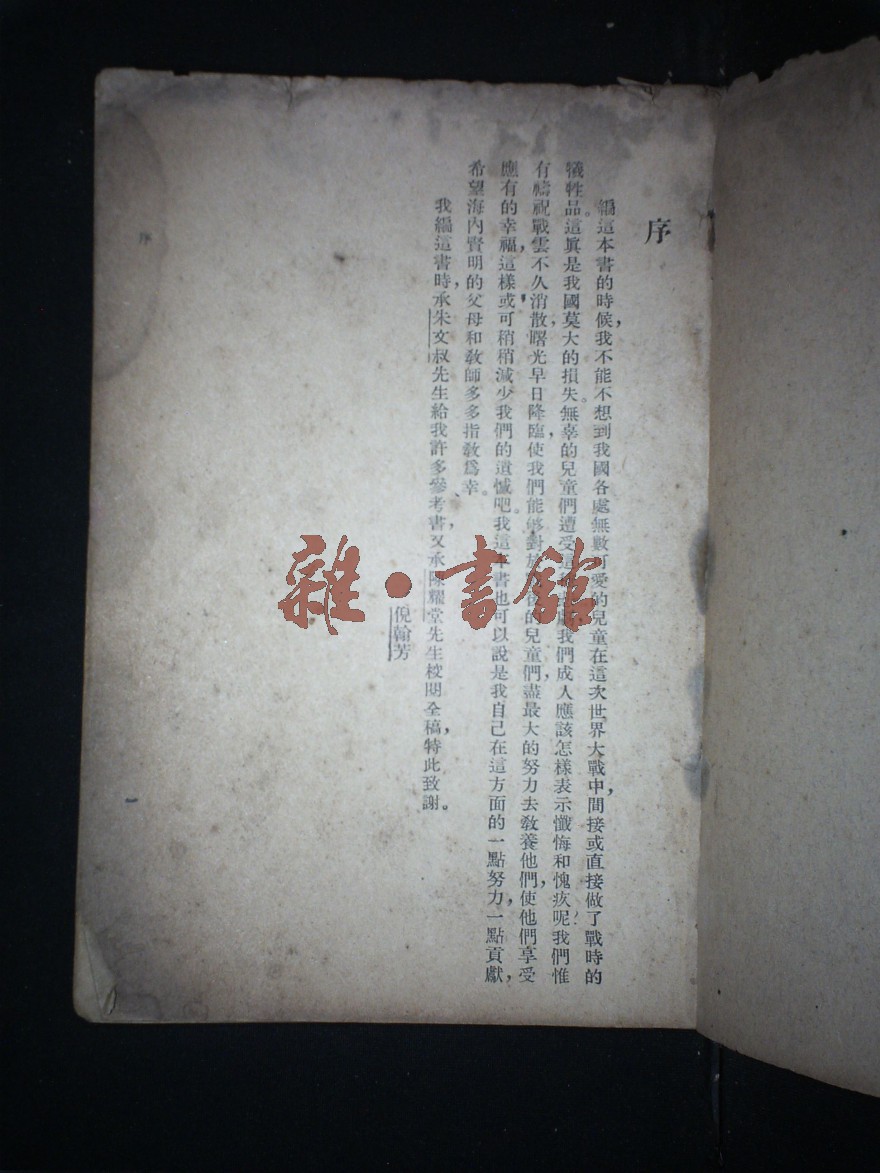 序
編這本書的時候，我不能不想到我國各處無數可愛的兒童在這次世界大戰中，間接或直接做了戰時的
犧牲品。這眞是我國莫大的損失。無辜的兒童們遭受這我們成人應該怎樣表示懺悔和愧疚呢？我們惟
有禱祝戰雲不久消散，曙光早日降臨，使我們能够對的兒童們，盡最大的努力去敎養他們，使他們享受
應有的幸福，這樣或可稍稍減少我們的遺憾吧。我這本書也可以說是我自己在這方面的一點努力，一點貢獻，
希望海內賢明的父母和敎師多多指敎爲幸。
我編這書時，承朱文叔先生給我許多參考書，又承陳耀堂先生校閱全稿，特此致謝。
倪翰芳
序
雜·書館